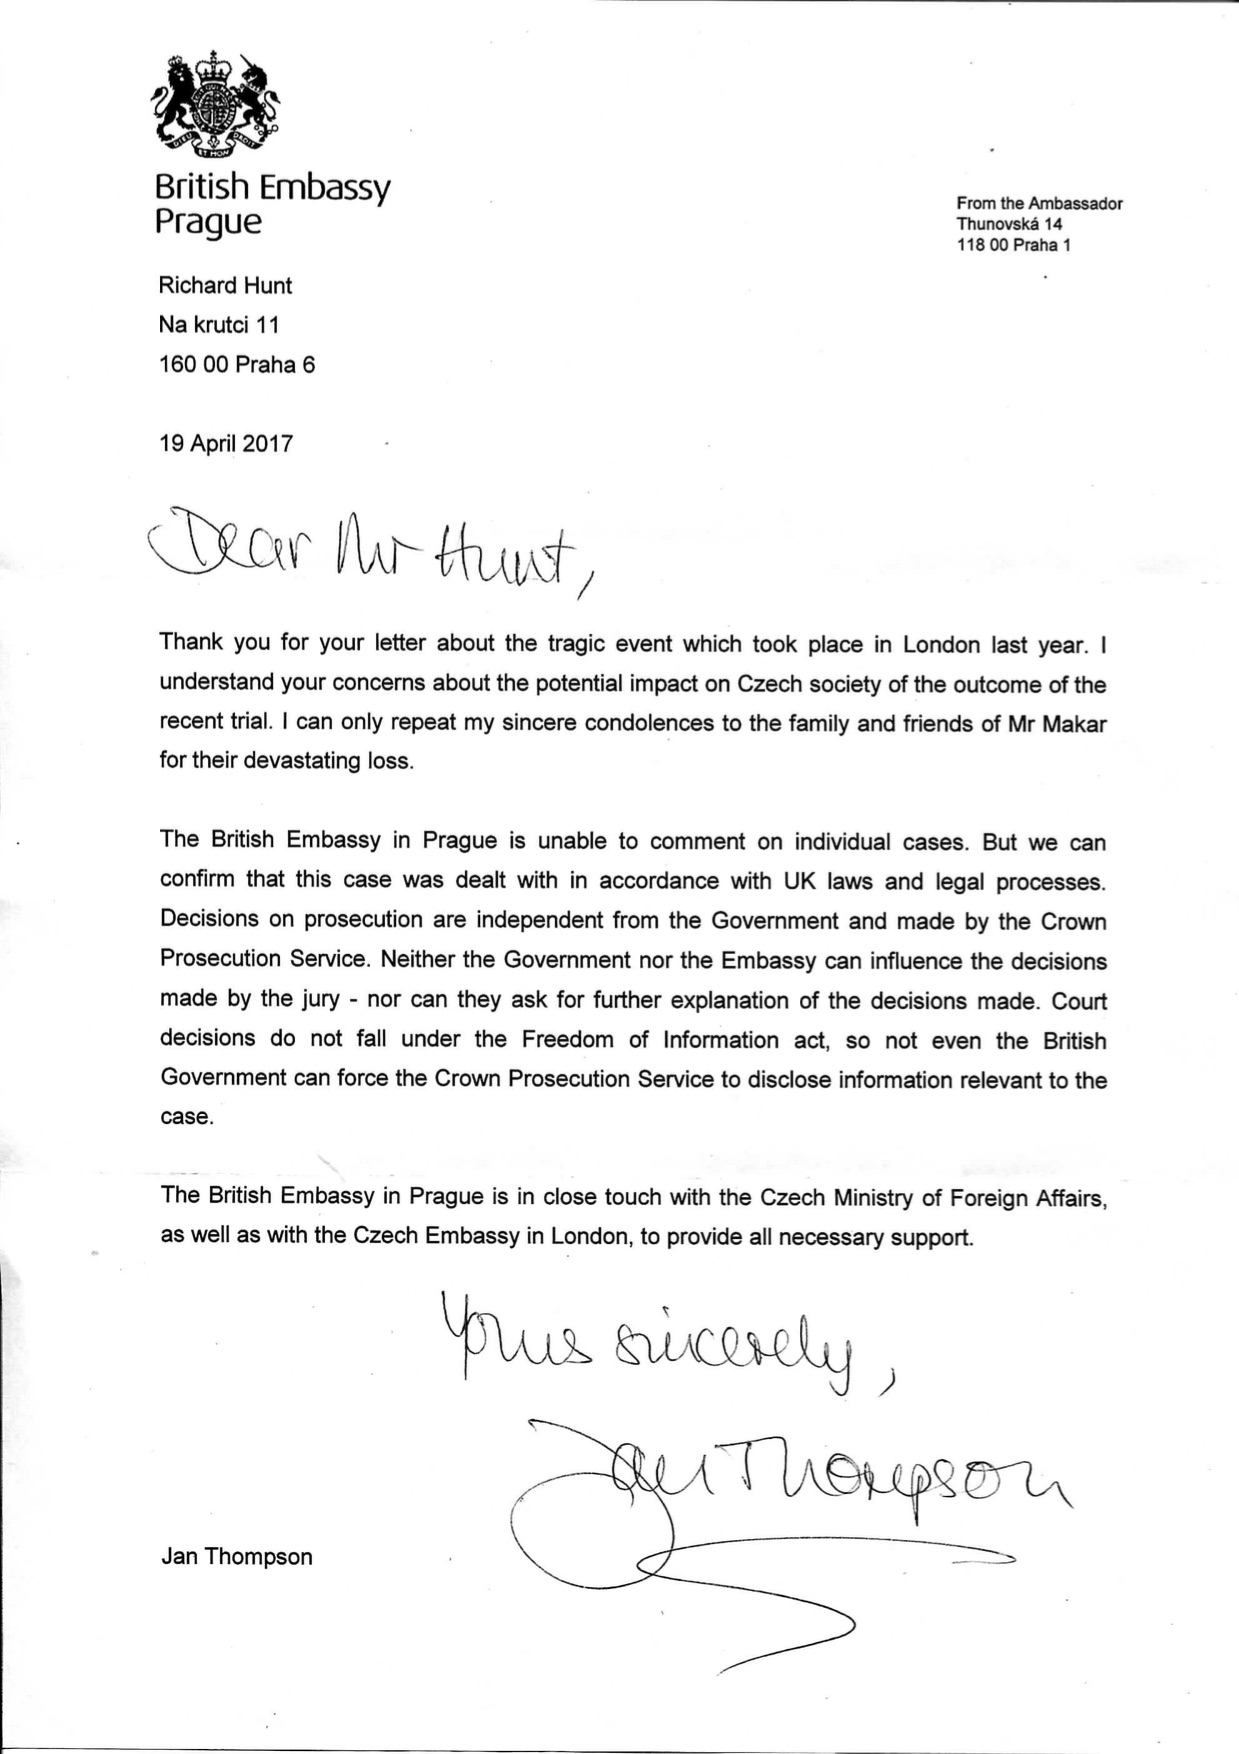 DIEU ET MON DROIT
British Embassy
Prague
From the Ambassador
Thunovská 14
118 00 Praha 1
Richard Hunt
Na krutci 11
160 00 Praha 6
19 April 2017
Dear Mr Hunt,
Thank you for your letter about the tragic event which took place in London last year. I
understand your concerns about the potential impact on Czech society of the outcome of the
recent trial. I can only repeat my sincere condolences to the family and friends of Mr Makar
for their devastating loss.
The British Embassy in Prague is unable to comment on individual cases. But we can
confirm that this case was dealt with in accordance with UK laws and legal processes.
Decisions on prosecution are independent from the Government and made by the Crown
Prosecution Service. Neither the Government nor the Embassy can influence the decisions
made by the jury - nor can they ask for further explanation of the decisions made. Court
decisions do not fall under the Freedom of Information act, so not even the British
Government can force the Crown Prosecution Service to disclose information relevant to the
case.
The British Embassy in Prague is in close touch with the Czech Ministry of Foreign Affairs,
as well as with the Czech Embassy in London, to provide all necessary support.
Yours sincerely,
Jan Thompson
Jan Thompson